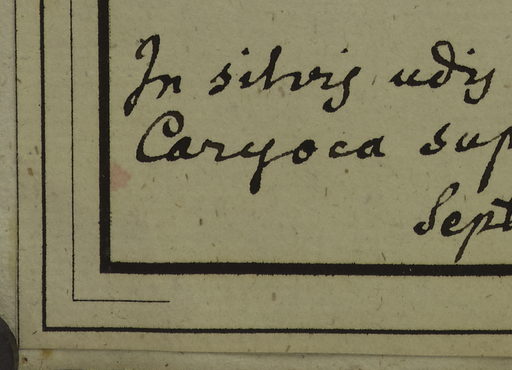 In silvis udis
Caryoca sup
Sept